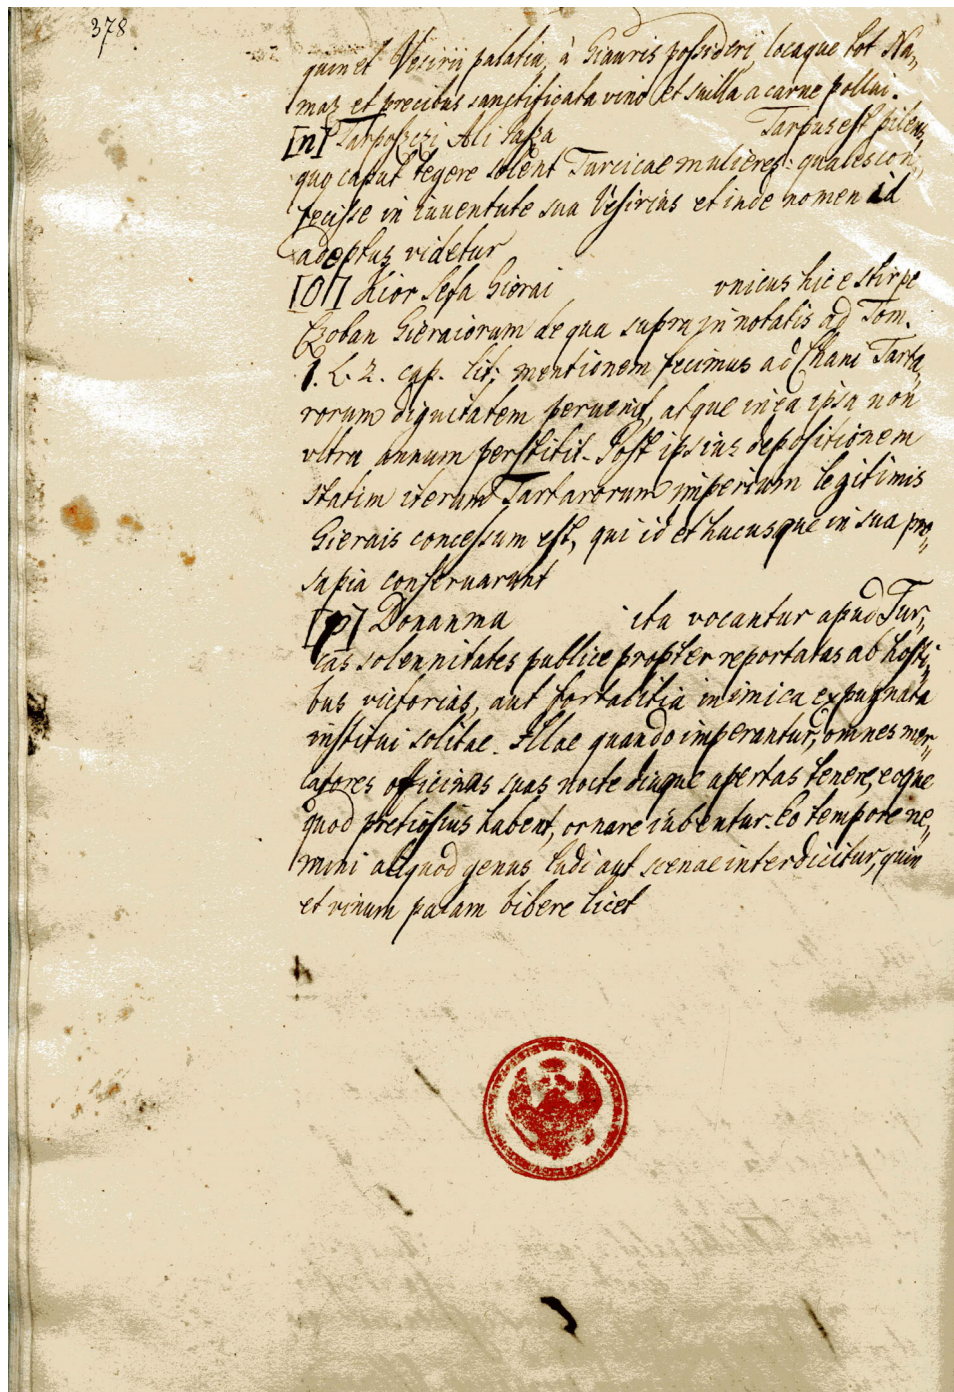 378
quin et Vesirii palatia, à Giauris possideri, locaque tot Na„
maz et precibus sanctificata vino et suilla a carne pollui.
[n] Tarposzczi Ali Pasza Tarpus est pileus,
quo caput tegere solent Turcicae mulieres: quales con„
fecisse in iuuentute sua Vesirius et inde nomen id
adeptus videtur
[o] Kior Sefa Gierai vnicus hic e stirpe
Czoban Gieraiorum de qua supra in notatis ad Tom.
1. L. 2. cap. lit; mentionem fecimus ad Chani Tarta„
rorum dignitatem peruenit, atque in ea ipsa non
vltra annum perstitit. Post ipsius depositionem
statim iterum Tartarorum imperium legitimis
Gierais concessum est, qui id et hucusque in sua pro„
sapia conseruarunt
[p] Donanma ita vocantur apud Tur„
cas solennitates publice propter reportatas ab hosti„
bus victorias, aut fortalitia inimica expugnata
institui solitae. Illae quando imperantur, omnes mer„
catores officinas suas nocte diuque apertas tenere, eoque
quod pretiosius habent, ornare iubentur. Eo tempore ne„
mini aliquod genus ludi aut scenae interdicitur, quin
et vinum palam bibere licet